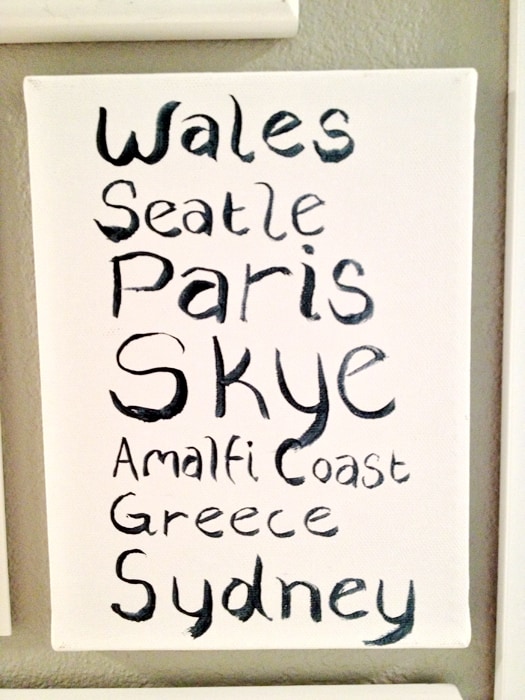 Wales
Seatle
Paris
Skye
Amalfi Coast
Greece
Sydney